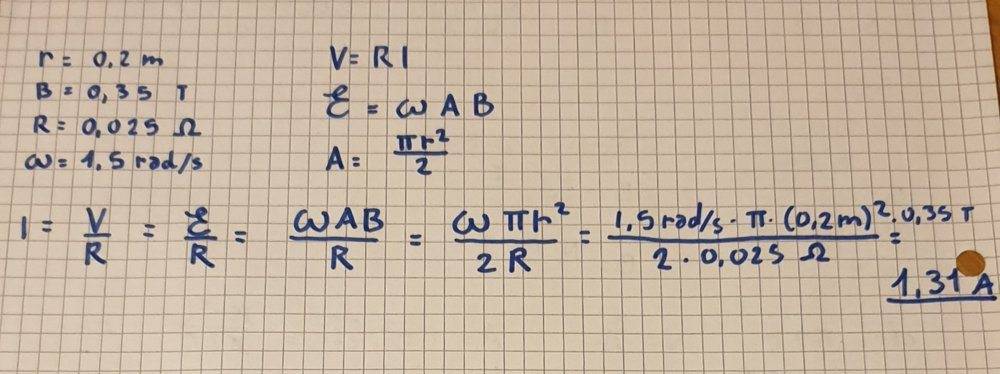 r = 0,2 m
B = 0,35 T
R = 0,025 Ω
ω = 1.5 rad/s
V = R I
Ɛ = ω A B
A = πr²/2
I = V/R = Ɛ/R = ωAB/R = ω πr²/2 R = 1,5 rad/s · π · (0,2 m)² · 0,35 T/2 · 0,025 Ω =
1,31 A